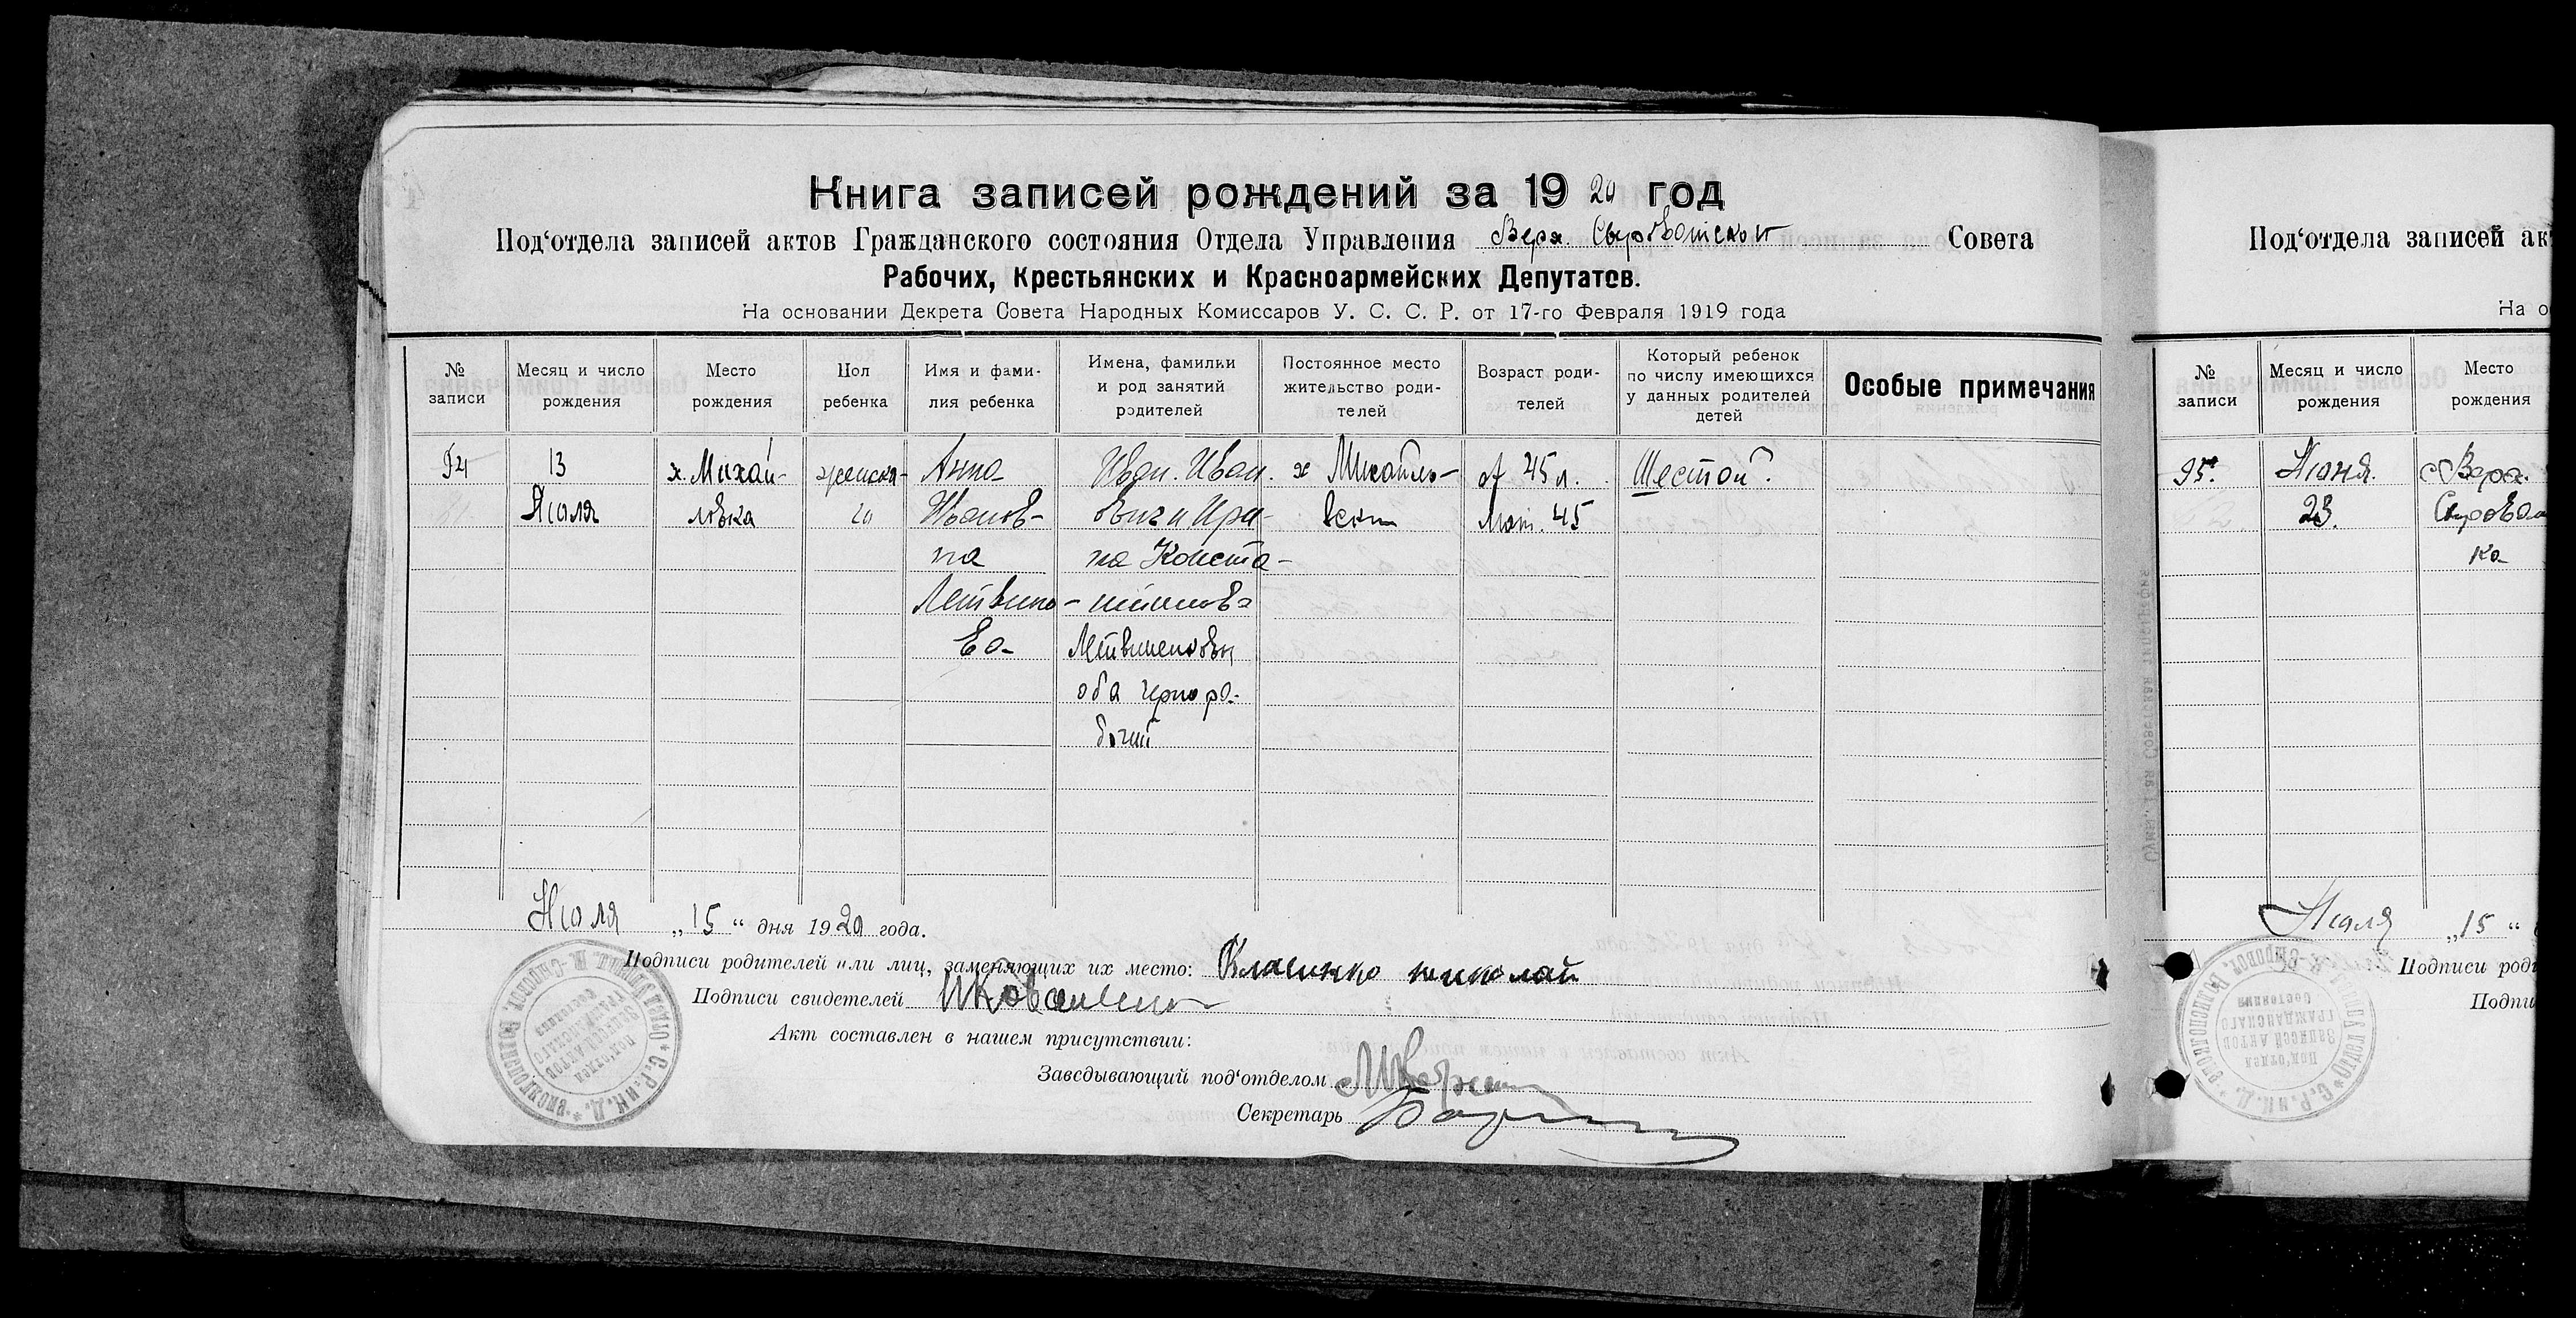 Книга записей рождений за 1920 год
Под‘отдела записей актов Гражданского состояния Отдела Управления Верх Сыроватской Совета
Рабочих, Крестьянских и Красноармейских Депутатов.
На основании Декрета Совета Народных Комиссаров У. С. С. Р. от 17-го Февраля 1919 года
№ записи
Месяц и число рождения
Место рождения
Пол ребенка
Имя и фами-
лия ребенка
Имена, фамилии
и род занятий
родителей
Постоянное место
жительство роди-
телей
Возраст роди-
телей
Который ребенок
по числу имеющихся
у данных родителей
детей
Особые примечания
94
13
Июля
х. Михай-
ловка
женска-
го
Анна
Иванов-
на
Литвино-
ва
Иван. Иван.
вич и Ири-
на Конста-
нтинов
оба черно ра-
бочий
х
от 45 л.
мат. 45
Шестой
Июля „15“ дня 1920 года.
Подписи родителей или лиц, заменяющих их место: николай
Подписи свидетелей
Акт составлен в нашем присутствии:
Заведывающий под‘отделом
Секретарь
Под‘отдела записей ак
На о
№ записи
Месяц и число
рождения
Место
рождения
95.
Июня.
23.
с Верх.
Сырова
ка
Июля „15“
Подписи род
Подпи